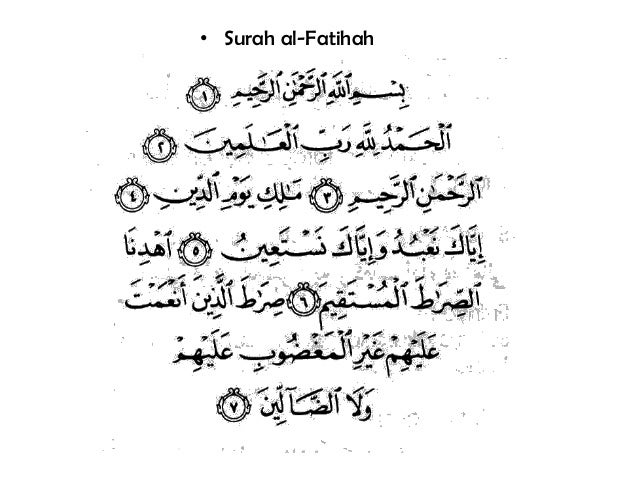 • Surah al-Fatihah
بِسْمِ ٱللَّهِ ٱلرَّحْمَٰنِ ٱلرَّحِيمِ ١
ٱلْحَمْدُ لِلَّهِ رَبِّ ٱلْعَٰلَمِينَ ٢
ٱلرَّحْمَٰنِ ٱلرَّحِيمِ ٣ مَٰلِكِ يَوْمِ ٱلدِّينِ ٤
إِيَّاكَ نَعْبُدُ وَإِيَّاكَ نَسْتَعِينُ ٥ ٱهْدِنَا
ٱلصِّرَٰطَ ٱلْمُسْتَقِيمَ ٦ صِرَٰطَ ٱلَّذِينَ أَنْعَمْتَ
عَلَيْهِمْ غَيْرِ ٱلْمَغْضُوبِ عَلَيْهِمْ
وَلَا ٱلضَّآلِّينَ ٧